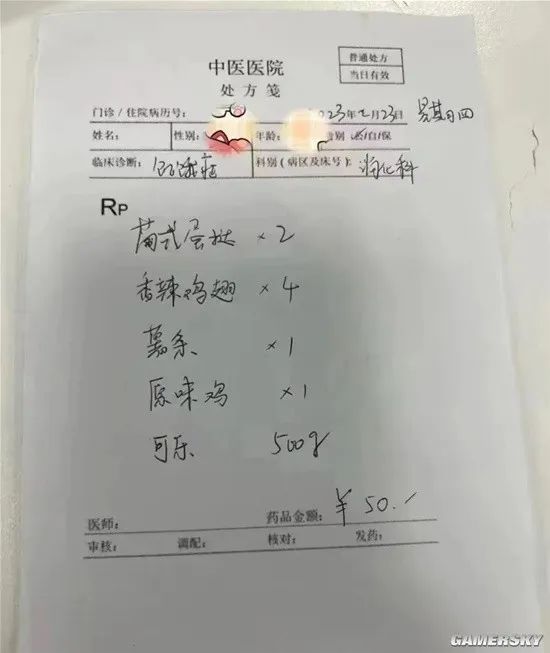 普通处方
当日有效
中医医院
处方笺
门诊/住院病历号: 2023年 月23日 星期四
姓名: 性别: 年龄: 自/保
临床诊断: 饥饿症 科别(病区及床号): 消化科
RP
葡式蛋挞 ×2
香辣鸡翅 ×4
薯条 ×1
原味鸡 ×1
可乐 500g
医师: 药品金额: ¥50.-
审核: 调配: 核对: 发药:
GAMERSKY